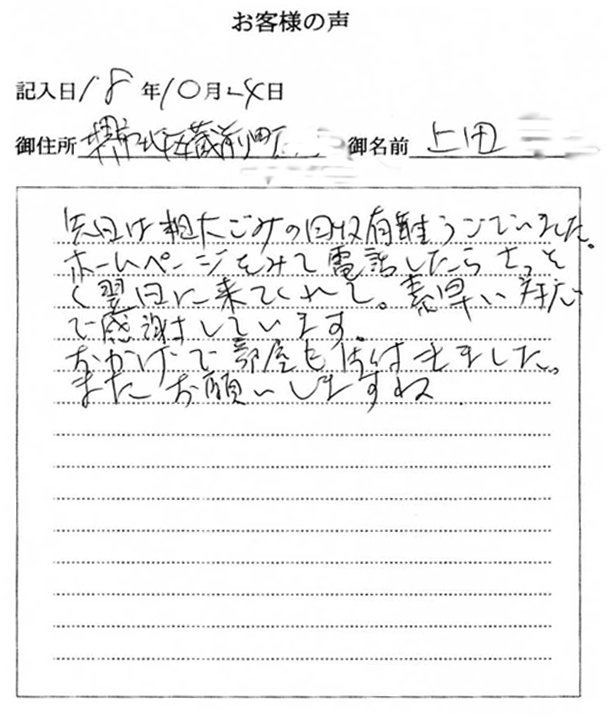 お客様の声
記入日 18年10月24日
御住所 堺市北区蔵前町 御名前 上田
先日は粗大ごみの回収有難うございました。
ホームページをみて電話したらさっそ
く翌日に来てくれて。素早い対応
で感謝しています。
おかげで部屋も片付きました。
またお願いしますね